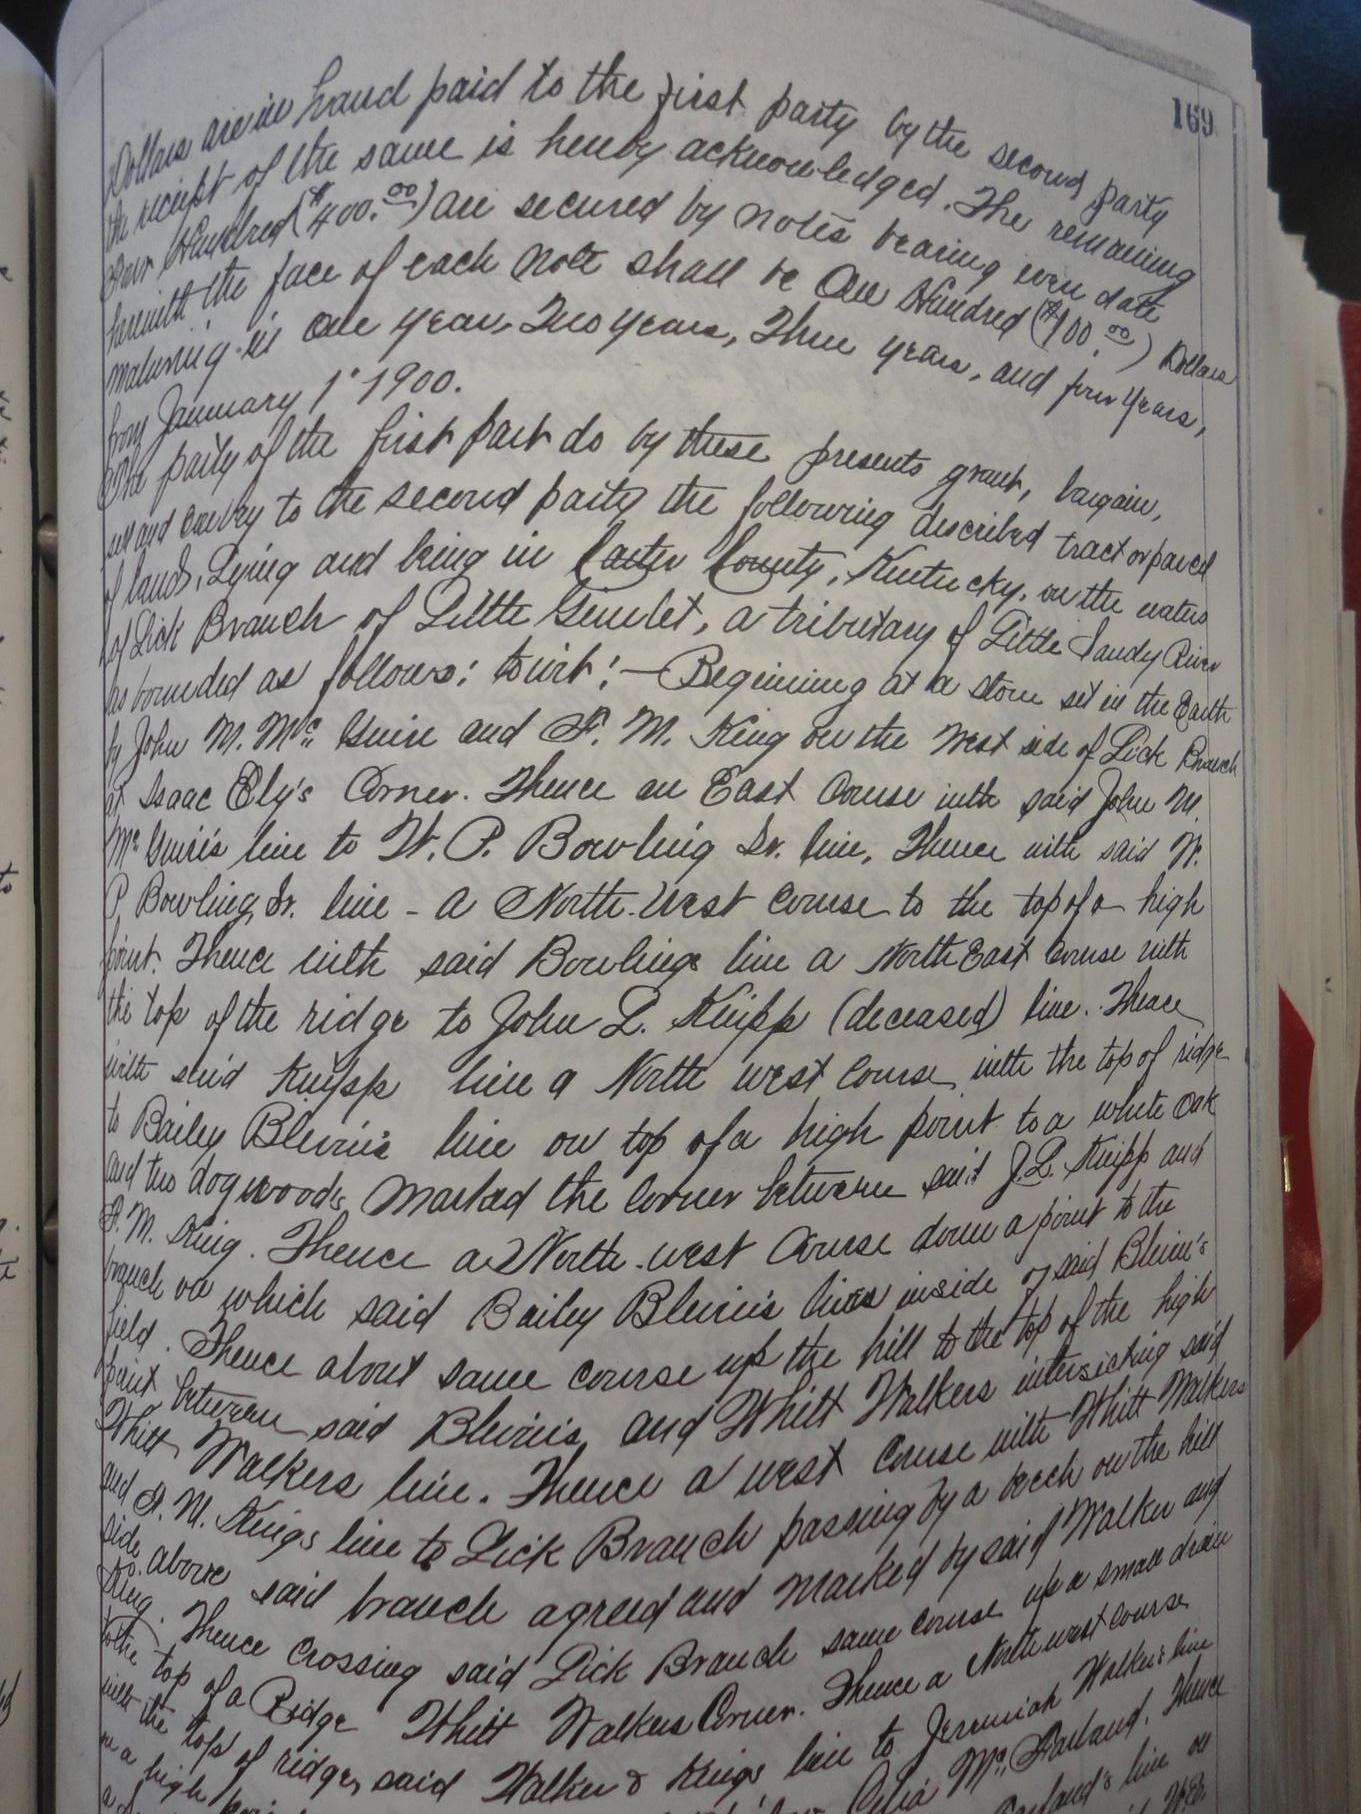 169
Dollars are in hand paid to the first party by the second party
the receipt of the same is hereby acknowledged. The remaining
Four Hundred ($400.00) are secured by notes bearing even date
herewith the face of each note shall be One Hundred ($100.00) Dollars
maturing in one year, Two years, Three years, and four years,
from January 1st 1900.
The party of the first part do by these presents grant, bargain,
sell and convey to the second party the following described tract or parcel
of land, Lying and being in Carter County, Kentucky, on the waters
of Lick Branch of Little Gimlet, a tributary of Little Sandy River
as bounded as follows: to wit:— Beginning at a stone set in the Earth
by John M. McGuire and F. M. King on the West side of Lick Branch
at Isaac Ely's Corner. Thence an East Course with said John M.
McGuire's line to W. P. Bowling Sr. line, Thence with said W.
P. Bowling, Sr. line - a North-West Course to the top of a high
point. Thence with said Bowlings line a North East Course with
the top of the ridge to John L. Knipp (deceased) line. Thence
with said Knipp line a North west Course with the top of ridge
to Bailey Blevins line on top of a high point to a white oak
and two dogwoods marked the corner between said J. L. Knipp and
F. M. King. Thence a North-west Course down a point to the
branch on which said Bailey Blevins lives inside of said Blevin's
field. Thence about same course up the hill to the top of the high
point between said Blevins, and Whitt Walkers intersecting said
Whitt Walkers line. Thence a west course with Whitt Walkers
and F. M. Kings line to Lick Branch passing by a beech on the hill
side above said branch agreed and marked by said Walker and
King. Thence crossing said Lick Branch same course up a small drain
to the top of a Ridge Whitt Walkers Corner. Thence a North west course
with the top of ridge, said Walker & Kings line to Jeremiah Walker's line
on a high Celia McFarland. Thence
line on